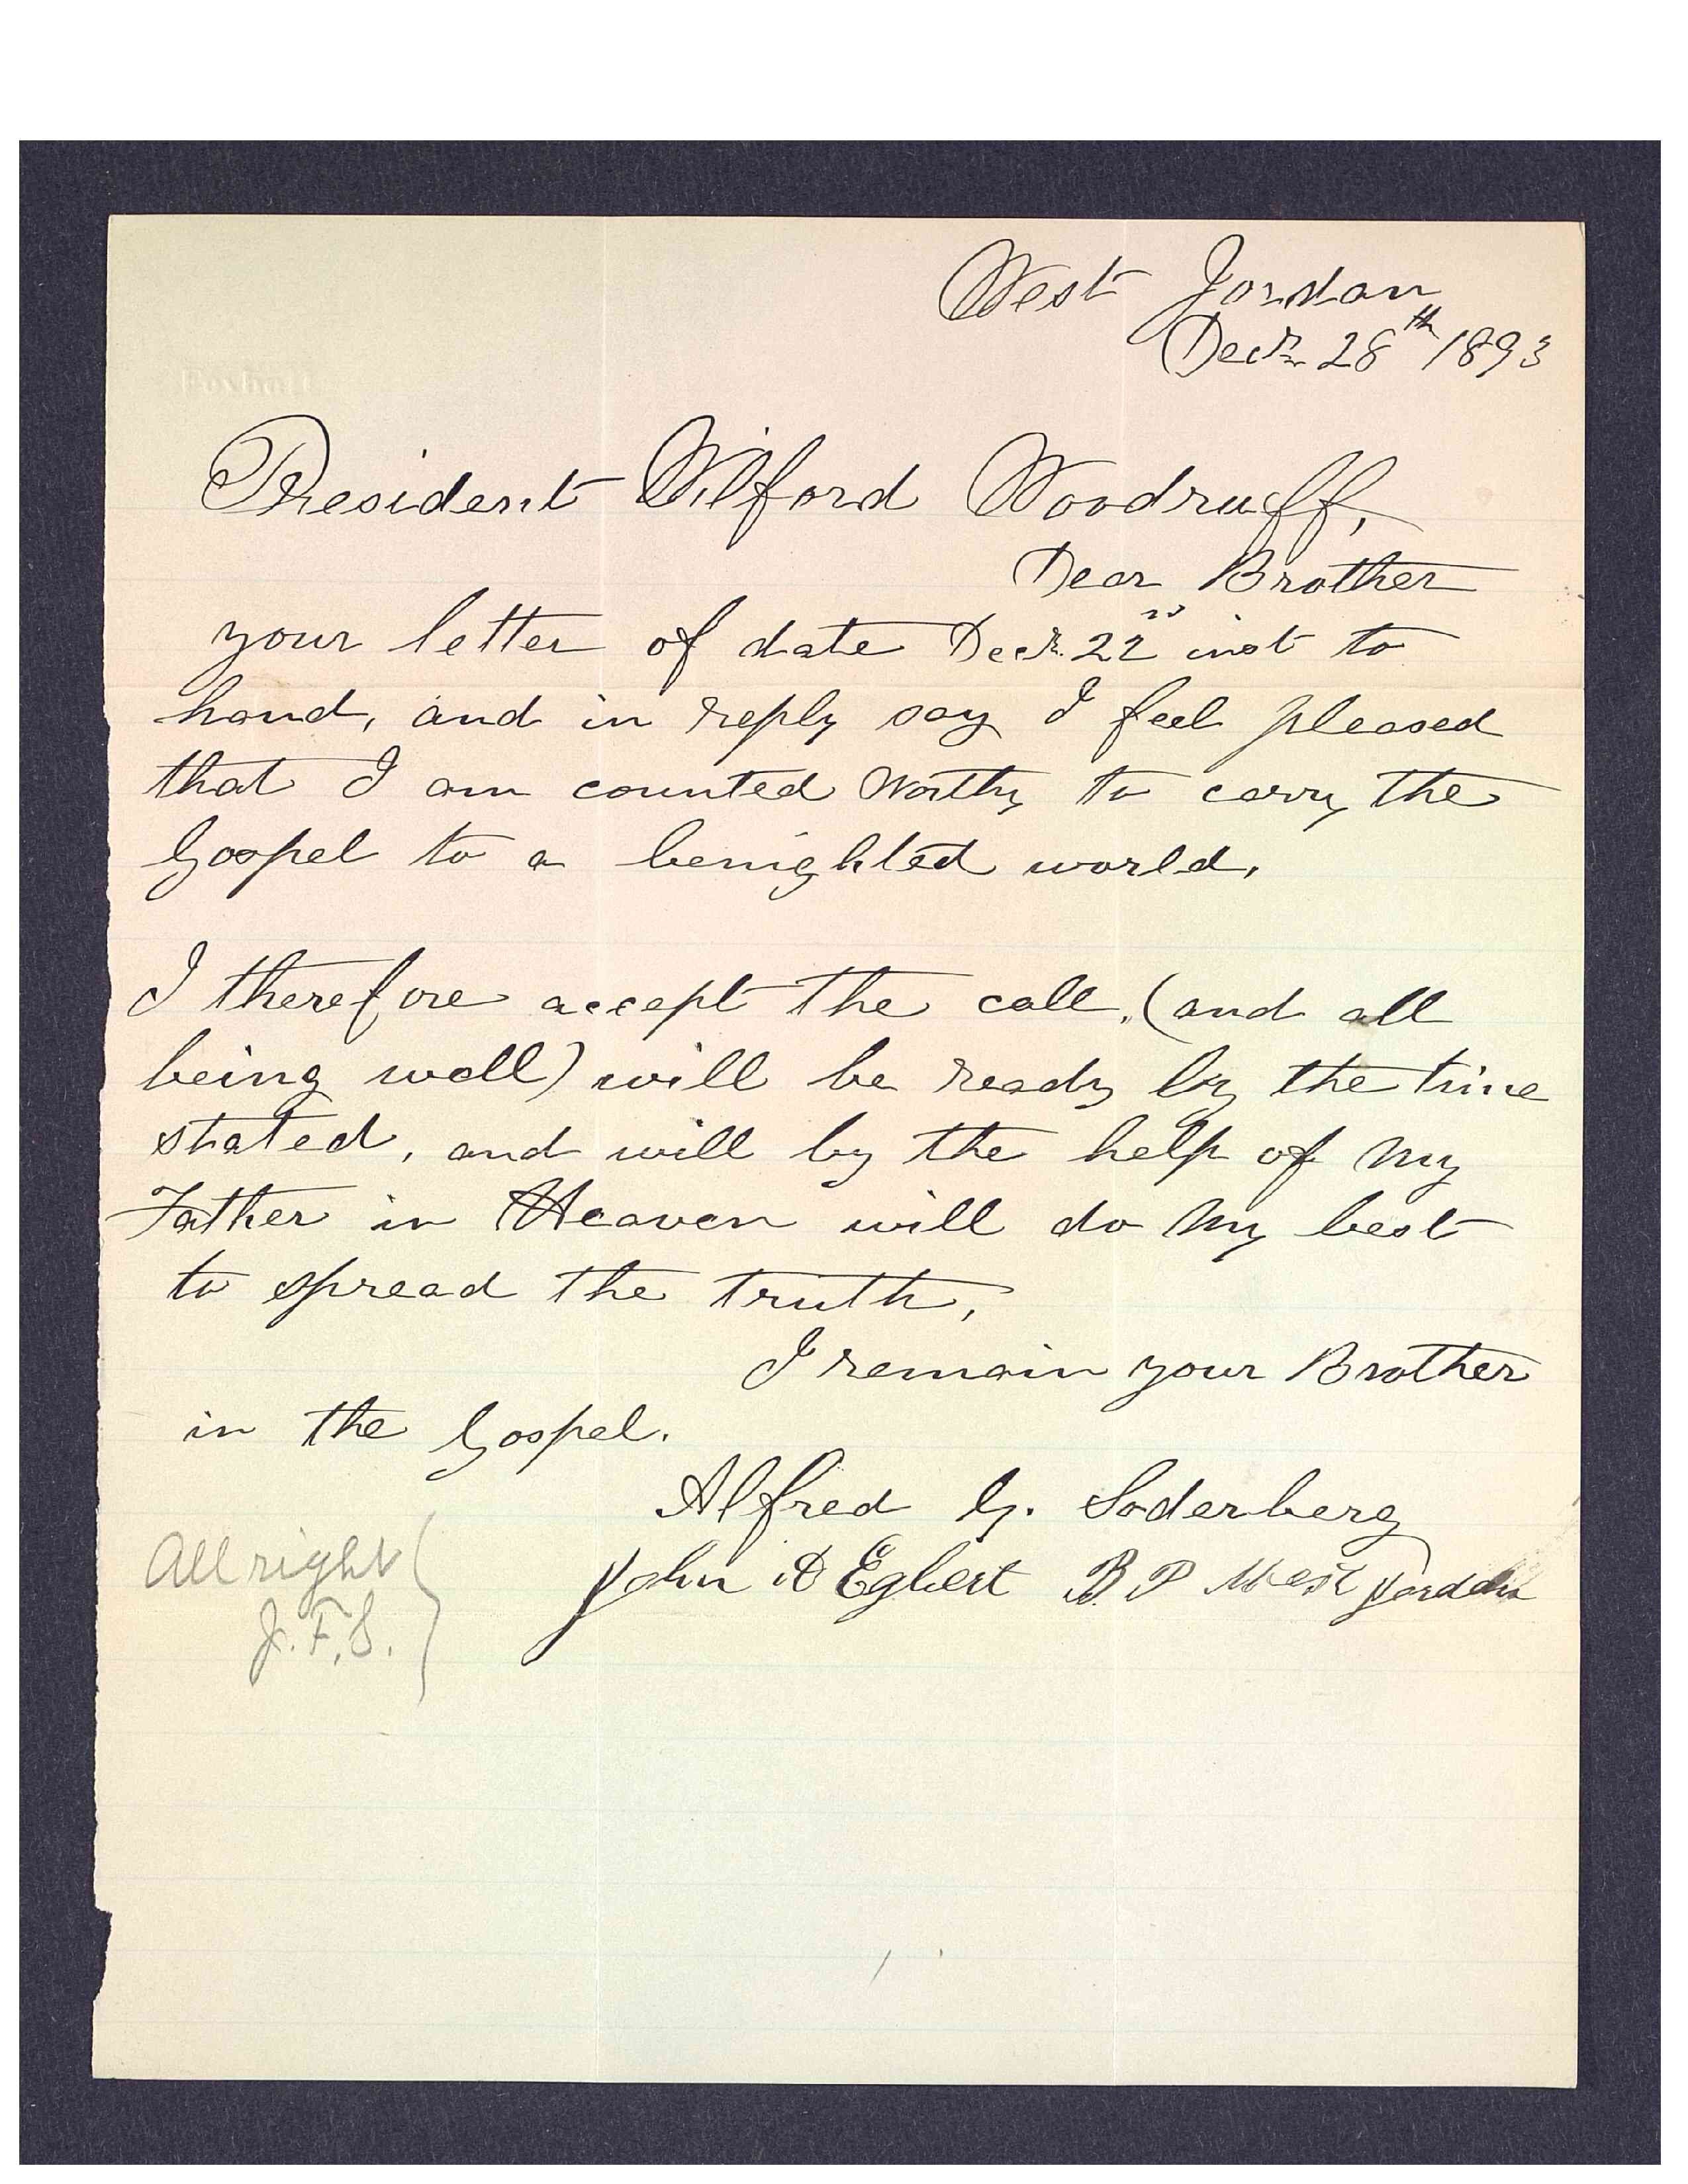 West Jordan
Decr 28th 1893
President Wilford Woodruff,
Dear Brother
your letter of date Decr. 22nd inst to
hand, and in reply say I feel pleased
that I am counted Worthy to carry the
Gospel to a benighted world.
I therefore accept the call. (and all
being well) will be ready by the time
stated, and will by the help of my
Father in Heaven will do my best
to spread the truth,
I remain your Brother
in the Gospel.
Alfred G. Soderberg
John A Egbert B.P West Jordan
All right
J.F.S.